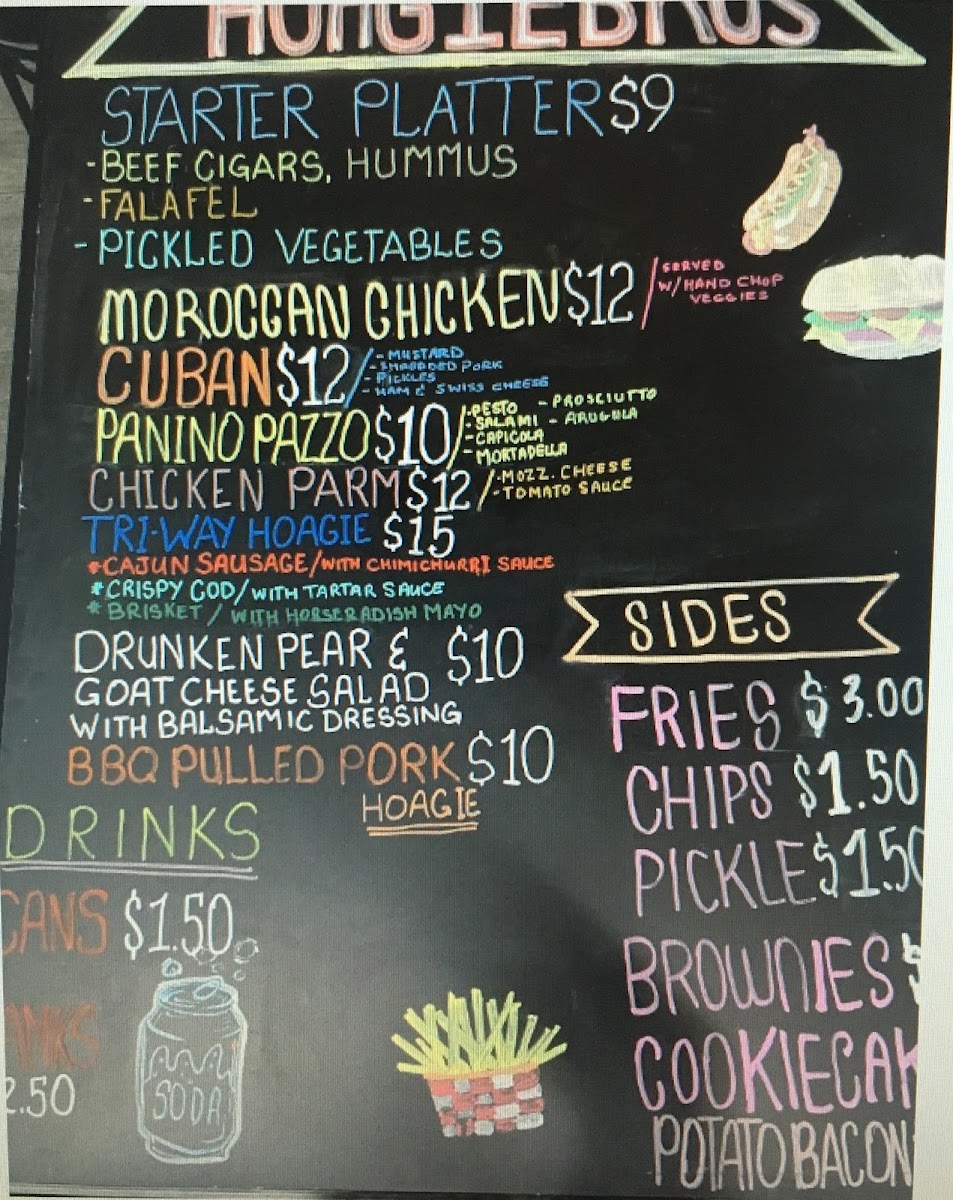 HOAGIEBROS
STARTER PLATTER $9
-BEEF CIGARS, HUMMUS
-FALAFEL
-PICKLED VEGETABLES
MOROCCAN CHICKEN $12 / SERVED
W/HAND CHOP
VEGGIES
CUBAN $12 / - MUSTARD
- SHREDDED PORK
- PICKLES
- HAM & SWISS CHEESE
PANINO PAZZO $10 / -PESTO - PROSCIUTTO
-SALAMI - ARUGULA
-CAPICOLA
-MORTADELLA
CHICKEN PARM $12 / -MOZZ. CHEESE
-TOMATO SAUCE
TRI-WAY HOAGIE $15
*CAJUN SAUSAGE/WITH CHIMICHURRI SAUCE
*CRISPY COD/WITH TARTAR SAUCE
*BRISKET / WITH HORSERADISH MAYO
DRUNKEN PEAR & $10
GOAT CHEESE SALAD
WITH BALSAMIC DRESSING
BBQ PULLED PORK $10
HOAGIE
DRINKS
CANS $1.50
2.50
SODA
SIDES
FRIES $3.00
CHIPS $1.50
PICKLE $1.50
BROWNIES $
COOKIECAK
POTATO BACON